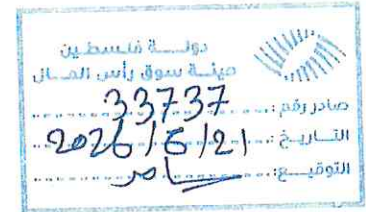 دولة فلسطين
هيئة سوق رأس المال
صادر رقم: 33737
التاريخ: 2026/6/21
التوقيع: